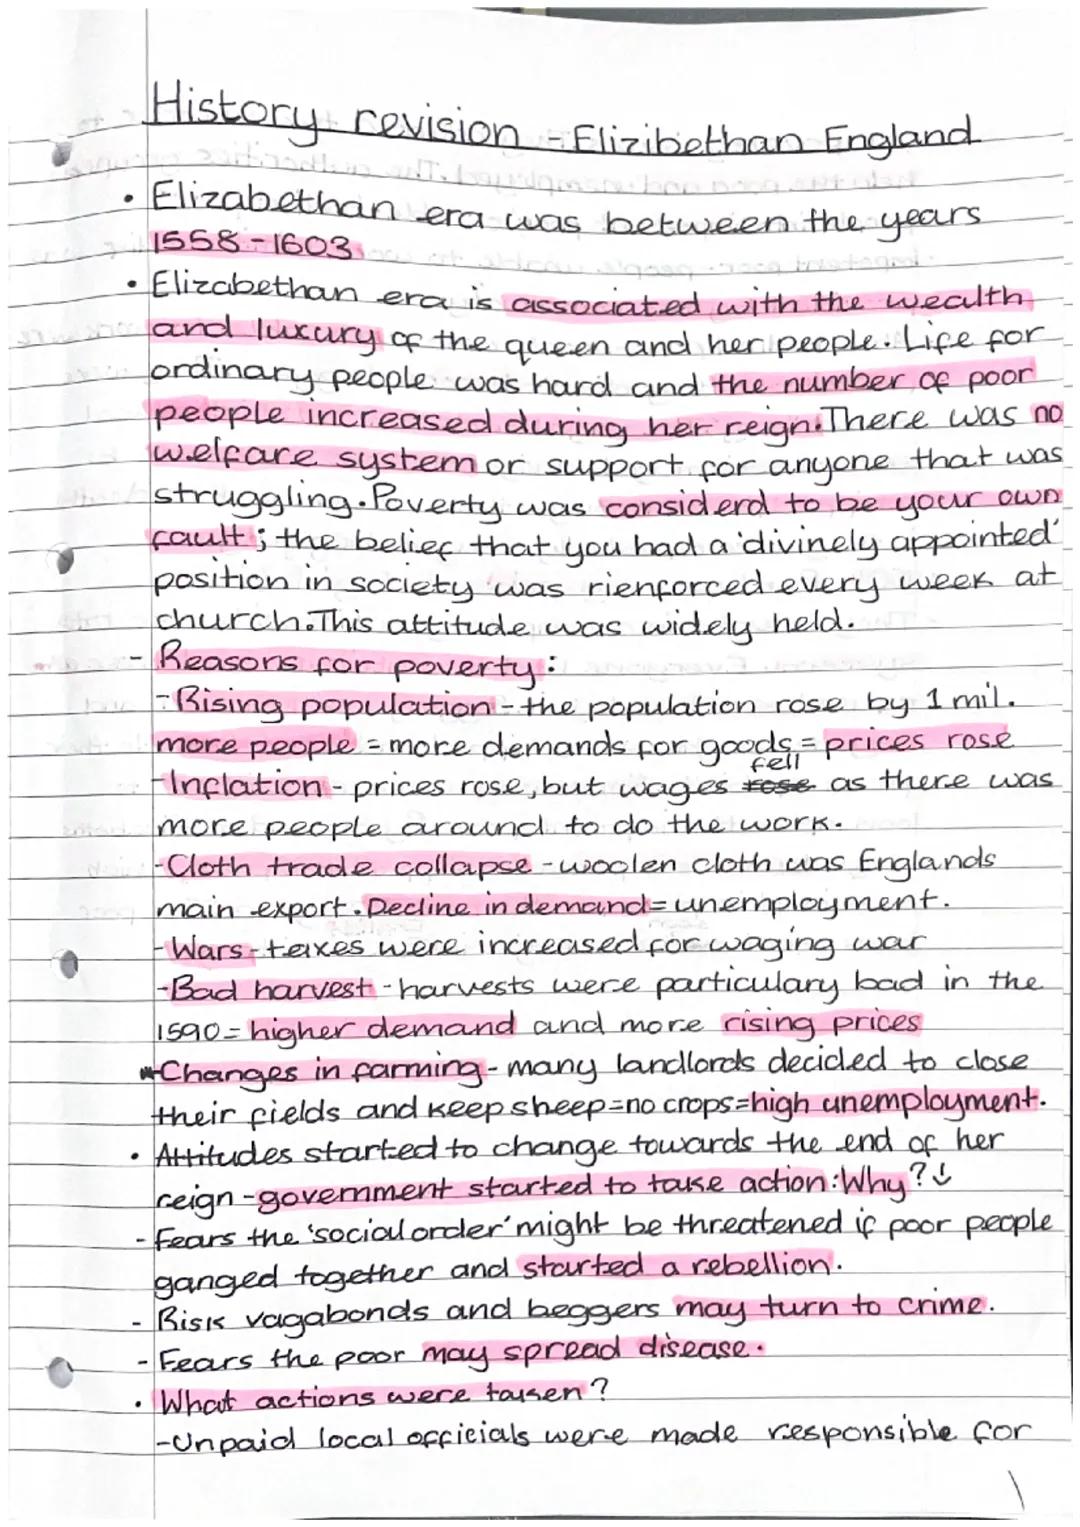 History revision - Elizibethan England
• Elizabethan era was between the years
1558-1603
• Elizabethan era is associated with the wealth
and luxury of the queen and her people. Life for
ordinary people was hard and the number of poor
people increased during her reign. There was no
welfare system or support for anyone that was
struggling. Poverty was considerd to be your own
fault; the belief that you had a 'divinely appointed'
position in society was rienforced every week at
church. This attitude was widely held.
- Reasons for poverty:
- Rising population - the population rose by 1 mil.
more people = more demands for goods = prices rose
fell
- Inflation - prices rose, but wages rose as there was
more people around to do the work.
- Cloth trade collapse - woolen cloth was Englands
main export. Decline in demand = unemployment.
- Wars - taxes were increased for waging war
- Bad harvest - harvests were particulary bad in the
1590 = higher demand and more rising prices
- Changes in farming - many landlords decided to close
their fields and keep sheep = no crops = high unemployment.
• Attitudes started to change towards the end of her
reign - government started to take action: Why? ↓
- Fears the 'social order' might be threatened if poor people
ganged together and started a rebellion.
- Risk vagabonds and beggers may turn to crime.
- Fears the poor may spread disease.
• What actions were taken?
- Unpaid local officials were made responsible for